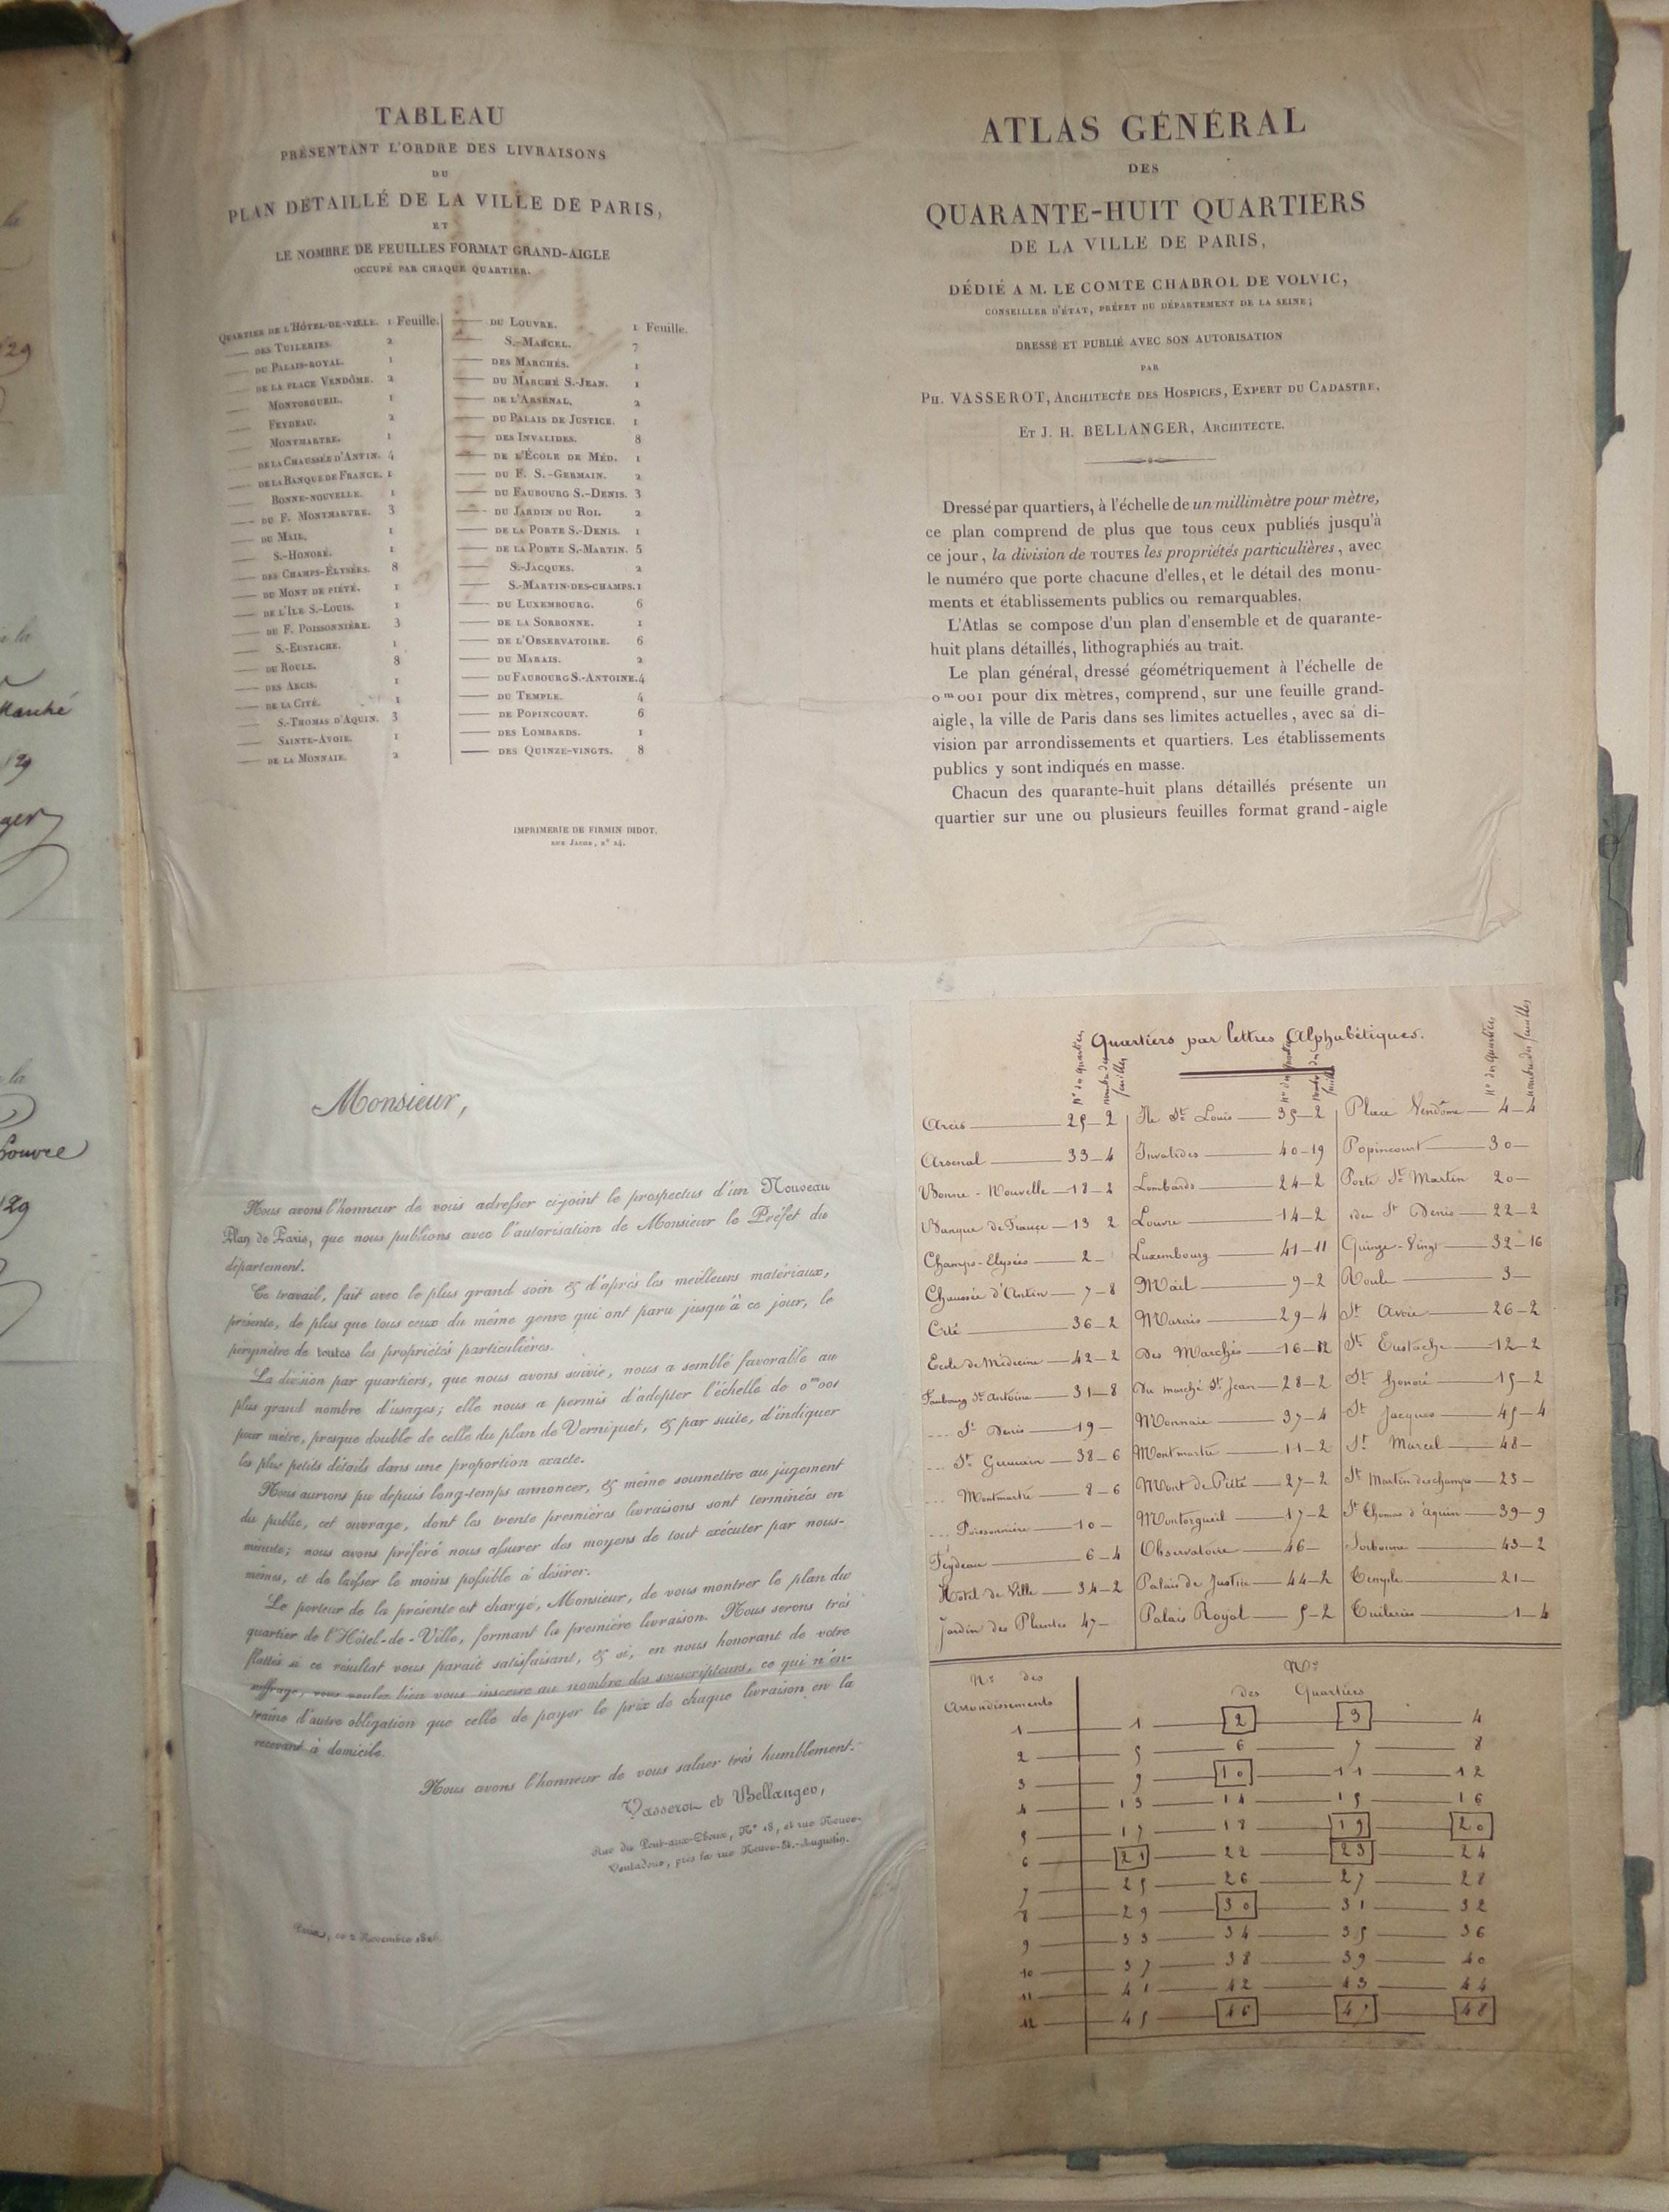 TABLEAU
PRÉSENTANT L'ORDRE DES LIVRAISONS
DU
PLAN DÉTAILLÉ DE LA VILLE DE PARIS,
ET
LE NOMBRE DE FEUILLES FORMAT GRAND-AIGLE
OCCUPÉ PAR CHAQUE QUARTIER.
QUARTIER DE L'HÔTEL-DE-VILLE. 1 Feuille.
—— DES TUILERIES. 2
—— DU PALAIS-ROYAL. 1
—— DE LA PLACE VENDÔME. 2
—— MONTORGUEIL. 1
—— FEYDEAU. 2
—— MONTMARTRE. 1
—— DE LA CHAUSSÉE D'ANTIN. 4
—— DE LA BANQUE DE FRANCE. 1
—— BONNE-NOUVELLE. 1
—— DU F. MONTMARTRE. 3
—— DU MAIL. 1
—— S.-HONORÉ. 1
—— DES CHAMPS-ÉLYSÉES. 8
—— DU MONT DE PIÉTÉ. 1
—— DE L'ILE S.-LOUIS. 1
—— DU F. POISSONNIÈRE. 3
—— S.-EUSTACHE. 1
—— DU ROULE. 8
—— DES ARCIS. 1
—— DE LA CITÉ. 1
—— S.-THOMAS D'AQUIN. 3
—— SAINTE-AVOIE. 1
—— DE LA MONNAIE. 2
—— DU LOUVRE. 1 Feuille.
—— S.-MARCEL. 7
—— DES MARCHÉS. 1
—— DU MARCHÉ S.-JEAN. 1
—— DE L'ARSENAL. 2
—— DU PALAIS DE JUSTICE. 1
—— DES INVALIDES. 8
—— DE L'ÉCOLE DE MÉD. 1
—— DU F. S.-GERMAIN. 2
—— DU FAUBOURG S.-DENIS. 3
—— DU JARDIN DU ROI. 2
—— DE LA PORTE S.-DENIS. 1
—— DE LA PORTE S.-MARTIN. 5
—— S.-JACQUES. 2
—— S.-MARTIN-DES-CHAMPS. 1
—— DU LUXEMBOURG. 6
—— DE LA SORBONNE. 1
—— DE L'OBSERVATOIRE. 6
—— DU MARAIS. 2
—— DU FAUBOURG S.-ANTOINE. 4
—— DU TEMPLE. 4
—— DE POPINCOURT. 6
—— DES LOMBARDS. 1
—— DES QUINZE-VINGTS. 8
IMPRIMERIE DE FIRMIN DIDOT,
RUE JACOB, N° 24.
ATLAS GÉNÉRAL
DES
QUARANTE-HUIT QUARTIERS
DE LA VILLE DE PARIS,
DÉDIÉ A M. LE COMTE CHABROL DE VOLVIC,
CONSEILLER D'ÉTAT, PRÉFET DU DÉPARTEMENT DE LA SEINE;
DRESSÉ ET PUBLIÉ AVEC SON AUTORISATION
PAR
PH. VASSEROT, ARCHITECTE DES HOSPICES, EXPERT DU CADASTRE,
ET J. H. BELLANGER, ARCHITECTE.
Dressé par quartiers, à l'échelle de un millimètre pour mètre,
ce plan comprend de plus que tous ceux publiés jusqu'à
ce jour, la division de TOUTES les propriétés particulières, avec
le numéro que porte chacune d'elles, et le détail des monu-
ments et établissements publics ou remarquables.
L'Atlas se compose d'un plan d'ensemble et de quarante-
huit plans détaillés, lithographiés au trait.
Le plan général, dressé géométriquement à l'échelle de
0m001 pour dix mètres, comprend, sur une feuille grand-
aigle, la ville de Paris dans ses limites actuelles, avec sa di-
vision par arrondissements et quartiers. Les établissements
publics y sont indiqués en masse.
Chacun des quarante-huit plans détaillés présente un
quartier sur une ou plusieurs feuilles format grand-aigle
Monsieur,
Nous avons l'honneur de vous adresser ci-joint le prospectus d'un Nouveau
Plan de Paris, que nous publions avec l'autorisation de Monsieur le Préfet du
département.
Ce travail, fait avec le plus grand soin & d'après les meilleurs matériaux,
présente, de plus que tous ceux du même genre qui ont paru jusqu'à ce jour, le
périmètre de toutes les propriétés particulières.
La division par quartiers, que nous avons suivie, nous a semblé favorable au
plus grand nombre d'usages; elle nous a permis d'adopter l'échelle de 0m001
pour mètre, presque double de celle du plan de Verniquet, & par suite, d'indiquer
les plus petits détails dans une proportion exacte.
Nous aurions pu depuis long-temps annoncer, & même soumettre au jugement
du public, cet ouvrage, dont les trente premières livraisons sont terminées en
minute; nous avons préféré nous assurer des moyens de tout exécuter par nous-
mêmes, et de laisser le moins possible à désirer.
Le porteur de la présente est chargé, Monsieur, de vous montrer le plan du
quartier de l'Hôtel-de-Ville, formant la première livraison. Nous serons très
flattés si ce résultat vous paraît satisfaisant, & si, en nous honorant de votre
suffrage, vous voulez bien vous inscrire au nombre des souscripteurs, ce qui n'en-
traîne d'autre obligation que celle de payer le prix de chaque livraison en la
recevant à domicile.
Nous avons l'honneur de vous saluer très humblement.
Vasserot et Bellanger,
Rue du Pont-aux-Choux, N° 18, et rue Neuve-
Ventadour, près la rue Neuve-St.-Augustin.
Paris, ce 2 Novembre 1826.
Quartiers par lettres Alphabétiques.
N° des quartiers
nombre des feuilles
Arcis —— 25 — 2
Arsenal —— 33 — 4
Bonne-Nouvelle — 18 — 2
Banque de France — 13 2
Champs-Elysées —— 2 —
Chaussée d'Antin — 7 — 8
Cité —— 36 — 2
Ecole de Médecine — 42 — 2
Faubourg St Antoine — 31 — 8
... St Denis —— 19 —
... St Germain — 38 — 6
... Montmartre —— 8 — 6
... Poissonnière —— 10 —
Feydeau —— 6 — 4
Hôtel de Ville — 34 — 2
Jardin des Plantes 47 —
Ile St Louis —— 35 — 2
Invalides —— 40 — 19
Lombards —— 24 — 2
Louvre —— 14 — 2
Luxembourg —— 41 — 11
Mail —— 9 — 2
Marais —— 29 — 4
Des Marchés — 16 — 2
Du marché St Jean — 28 — 2
Monnaie —— 37 — 4
Montmartre —— 11 — 2
Mont de Piété — 27 — 2
Montorgueil —— 17 — 2
Observatoire —— 46 —
Palais de Justice — 44 — 2
Palais Royal —— 5 — 2
N° des quartiers
nombre des feuilles
Place Vendôme — 4 — 4
Popincourt —— 30 —
Porte St Martin 20 —
idem St Denis — 22 — 2
Quinze-Vingt —— 32 — 16
Roule —— 3 —
St Avoie —— 26 — 2
St Eustache —— 12 — 2
St honoré —— 15 — 2
St Jacques —— 45 — 4
St Marcel —— 48 —
St Martin des champs — 23 —
St Thomas d'aquin — 39 — 9
Sorbonne —— 43 — 2
Temple —— 21 —
Tuileries —— 1 — 4
Nos des Nos
Arrondissements des Quartiers
1 —— 1 —— 2 —— 3 —— 4
2 —— 5 —— 6 —— 7 —— 8
3 —— 9 —— 10 —— 11 —— 12
4 —— 13 —— 14 —— 15 —— 16
5 —— 17 —— 18 —— 19 —— 20
6 —— 21 —— 22 —— 23 —— 24
7 —— 25 —— 26 —— 27 —— 28
8 —— 29 —— 30 —— 31 —— 32
9 —— 33 —— 34 —— 35 —— 36
10 —— 37 —— 38 —— 39 —— 40
11 —— 41 —— 42 —— 43 —— 44
12 —— 45 —— 46 —— 47 —— 48